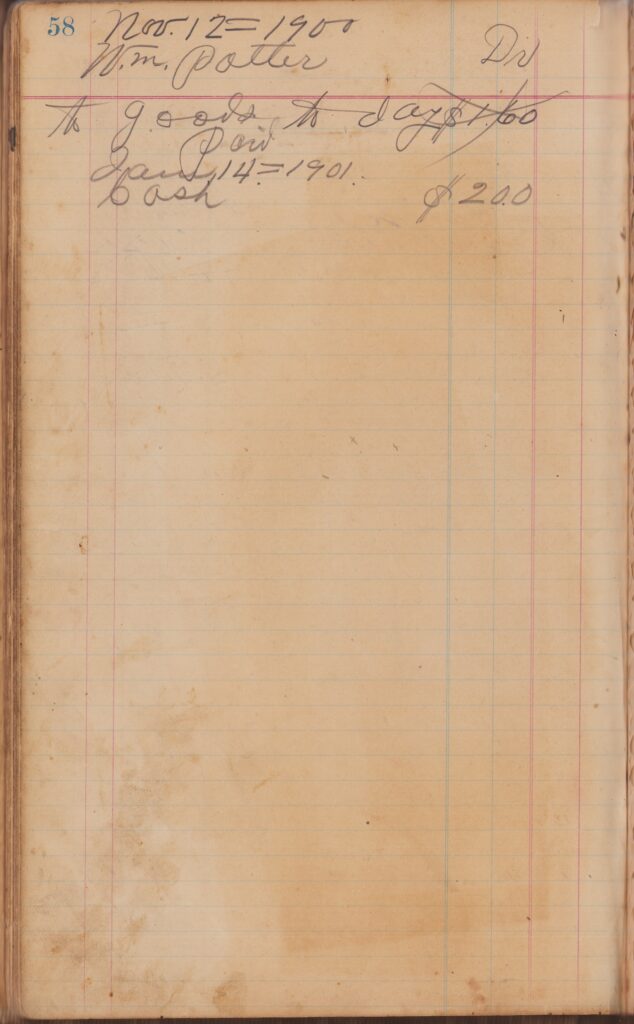 58 Nov. 12 = 1900
W.m. Potter Dr
to goods to day $1.60
Paid
Jan. 14 = 1901.
Cash $ 2.00